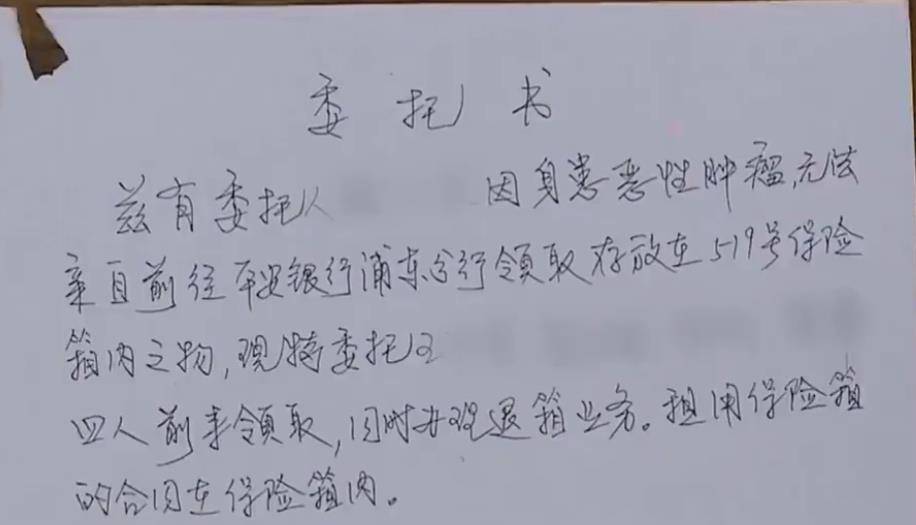 委托书
兹有委托人 因身患恶性肿瘤,无法
亲自前往平安银行浦东分行领取存放在519号保险
箱内之物,现特委托
四人前来领取,同时办理退箱业务。租用保险箱
的合同在保险箱内。